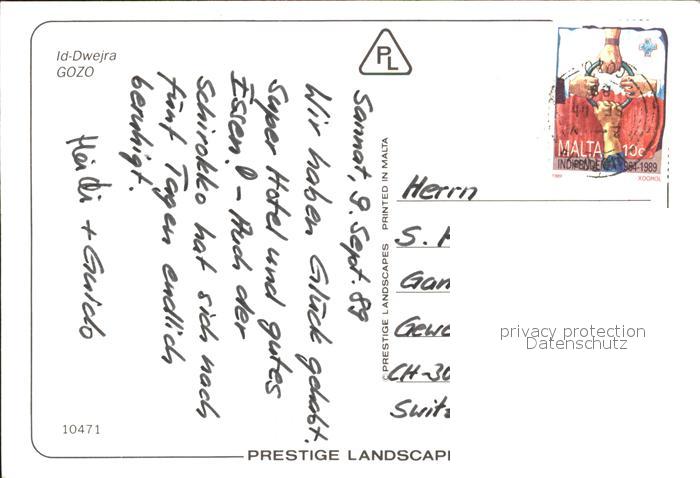 Id-Dwejra
GOZO
PL
Sannat, 9. Sept. 89
Wir haben Glück gehabt.
Super Hotel und gutes
Essen! - Auch der
Schirokko hat sich nach
fünf Tagen endlich
beruhigt.
Heidi + Guido
10471
PRESTIGE LANDSCAP
© PRESTIGE LANDSCAPES PRINTED IN MALTA
MALTA 10c
INDIPENDENZA 1964-1989
1989
Herrn
S.
Gew
CH-30
Switz
privacy protection
Datenschutz